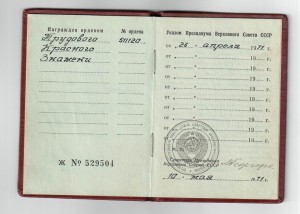 Награжден орденом № ордена
Трудового 511120
Красного
Знамени
Ж № 529504
Указом Президиума Верховного Совета СССР
от 26 апреля 1971 г.
от 19 г.
от 19 г.
от 19 г.
от 19 г.
от 19 г.
от 19 г.
от 19 г.
Секретарь Президиума
Верховного Совета СССР
10 мая 1971 г.